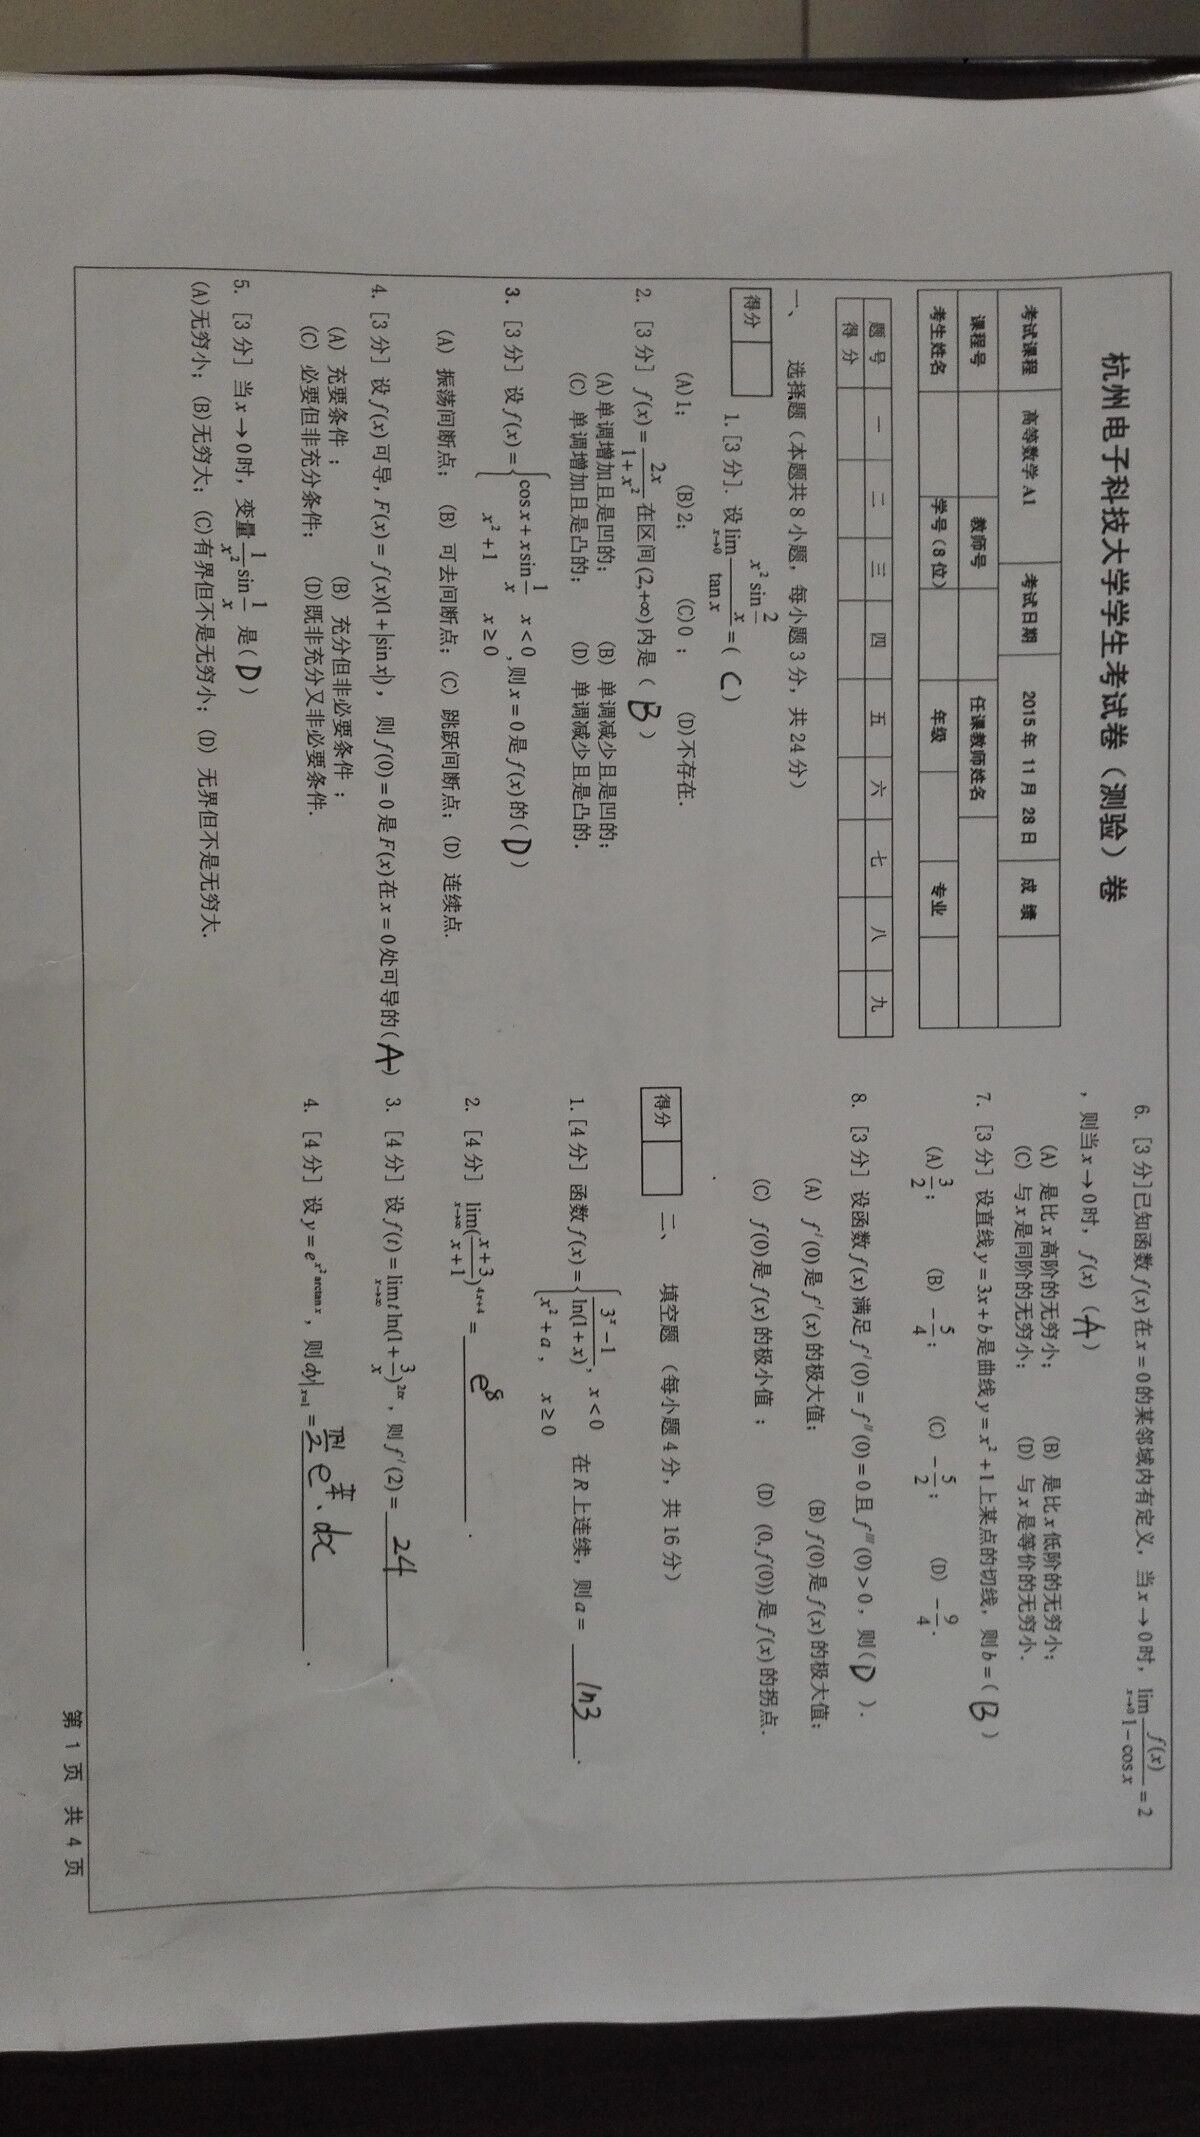 杭州电子科技大学学生考试卷（测验）卷
考试课程 高等数学 A1 考试日期 2015年 11月 28日 成 绩
课程号 教师号 任课教师姓名
考生姓名 学号（8位） 年级 专业
题 号 一 二 三 四 五 六 七 八 九
得 分
一、 选择题（本题共 8 小题，每小题 3 分，共 24 分）
得分
1. [3 分]. 设 lim_{x→0} (x² sin(2/x))/(tan x) = ( C )
(A) 1； (B) 2； (C) 0 ； (D) 不存在.
2. [3 分] f(x) = 2x/(1+x²) 在区间 (2,+∞) 内是（ B ）
(A) 单调增加且是凹的； (B) 单调减少且是凹的；
(C) 单调增加且是凸的； (D) 单调减少且是凸的.
3. [3 分] 设 f(x) = { cos x + x sin(1/x) x < 0
x² + 1 x ≥ 0 , 则 x = 0 是 f(x) 的( D )
(A) 振荡间断点； (B) 可去间断点；(C) 跳跃间断点；(D) 连续点.
4. [3 分] 设 f(x) 可导, F(x) = f(x)(1+|sin x|) ， 则 f(0) = 0 是 F(x) 在 x = 0 处可导的( A )
(A) 充要条件 ； (B) 充分但非必要条件 ；
(C) 必要但非充分条件； (D) 既非充分又非必要条件.
5. [3 分] 当 x → 0 时，变量 (1/x²) sin(1/x) 是( D )
(A) 无穷小；(B) 无穷大；(C) 有界但不是无穷小；(D) 无界但不是无穷大.
6. [3 分] 已知函数 f(x) 在 x = 0 的某邻域内有定义，当 x → 0 时， lim_{x→0} f(x)/(1−cos x) = 2
，则当 x → 0 时， f(x) （ A ）
(A) 是比 x 高阶的无穷小； (B) 是比 x 低阶的无穷小；
(C) 与 x 是同阶的无穷小； (D) 与 x 是等价的无穷小.
7. [3 分] 设直线 y = 3x + b 是曲线 y = x² + 1 上某点的切线，则 b =（ B ）
(A) 3/2； (B) −5/4； (C) −5/2； (D) −9/4.
8. [3 分] 设函数 f(x) 满足 f′(0) = f″(0) = 0 且 f‴(0) > 0，则( D ).
(A) f′(0) 是 f′(x) 的极大值； (B) f(0) 是 f(x) 的极大值；
(C) f(0) 是 f(x) 的极小值 ； (D) (0, f(0)) 是 f(x) 的拐点.
得分 二、 填空题 （每小题 4 分，共 16 分）
1. [4 分] 函数 f(x) = { (3ˣ − 1)/ln(1+x), x < 0
x² + a , x ≥ 0 在 R 上连续，则 a = ln3 .
2. [4 分] lim_{x→∞} ((x+3)/(x+1))^{4x+4} = e⁸ .
3. [4 分] 设 f(t) = lim_{x→∞} t ln(1+3/x)^{2tx}，则 f′(2) = 24 .
4. [4 分] 设 y = e^{x² arctan x}，则 dy|_{x=1} = e^{π/4}·dx .
第 1 页 共 4 页